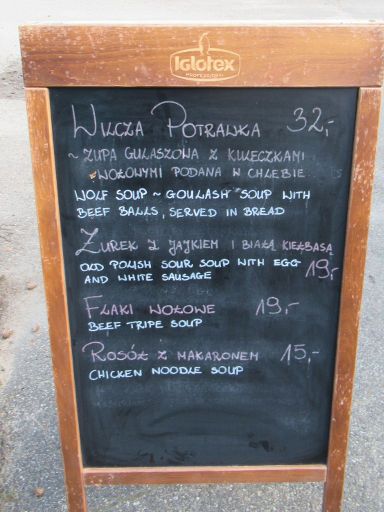 Iglotex
PROFESSIONAL
WILCZA POTRAWKA 32,-
~ ZUPA GULASZOWA Z KULECZKAMI
WOŁOWYMI PODANA W CHLEBIE
WOLF SOUP ~ GOULASH SOUP WITH
BEEF BALLS, SERVED IN BREAD
ŻUREK Z JAJKIEM I BIAŁĄ KIEŁBASĄ
OLD POLISH SOUR SOUP WITH EGG 19,-
AND WHITE SAUSAGE
FLAKI WOŁOWE 19,-
BEEF TRIPE SOUP
ROSÓŁ Z MAKARONEM 15,-
CHICKEN NOODLE SOUP